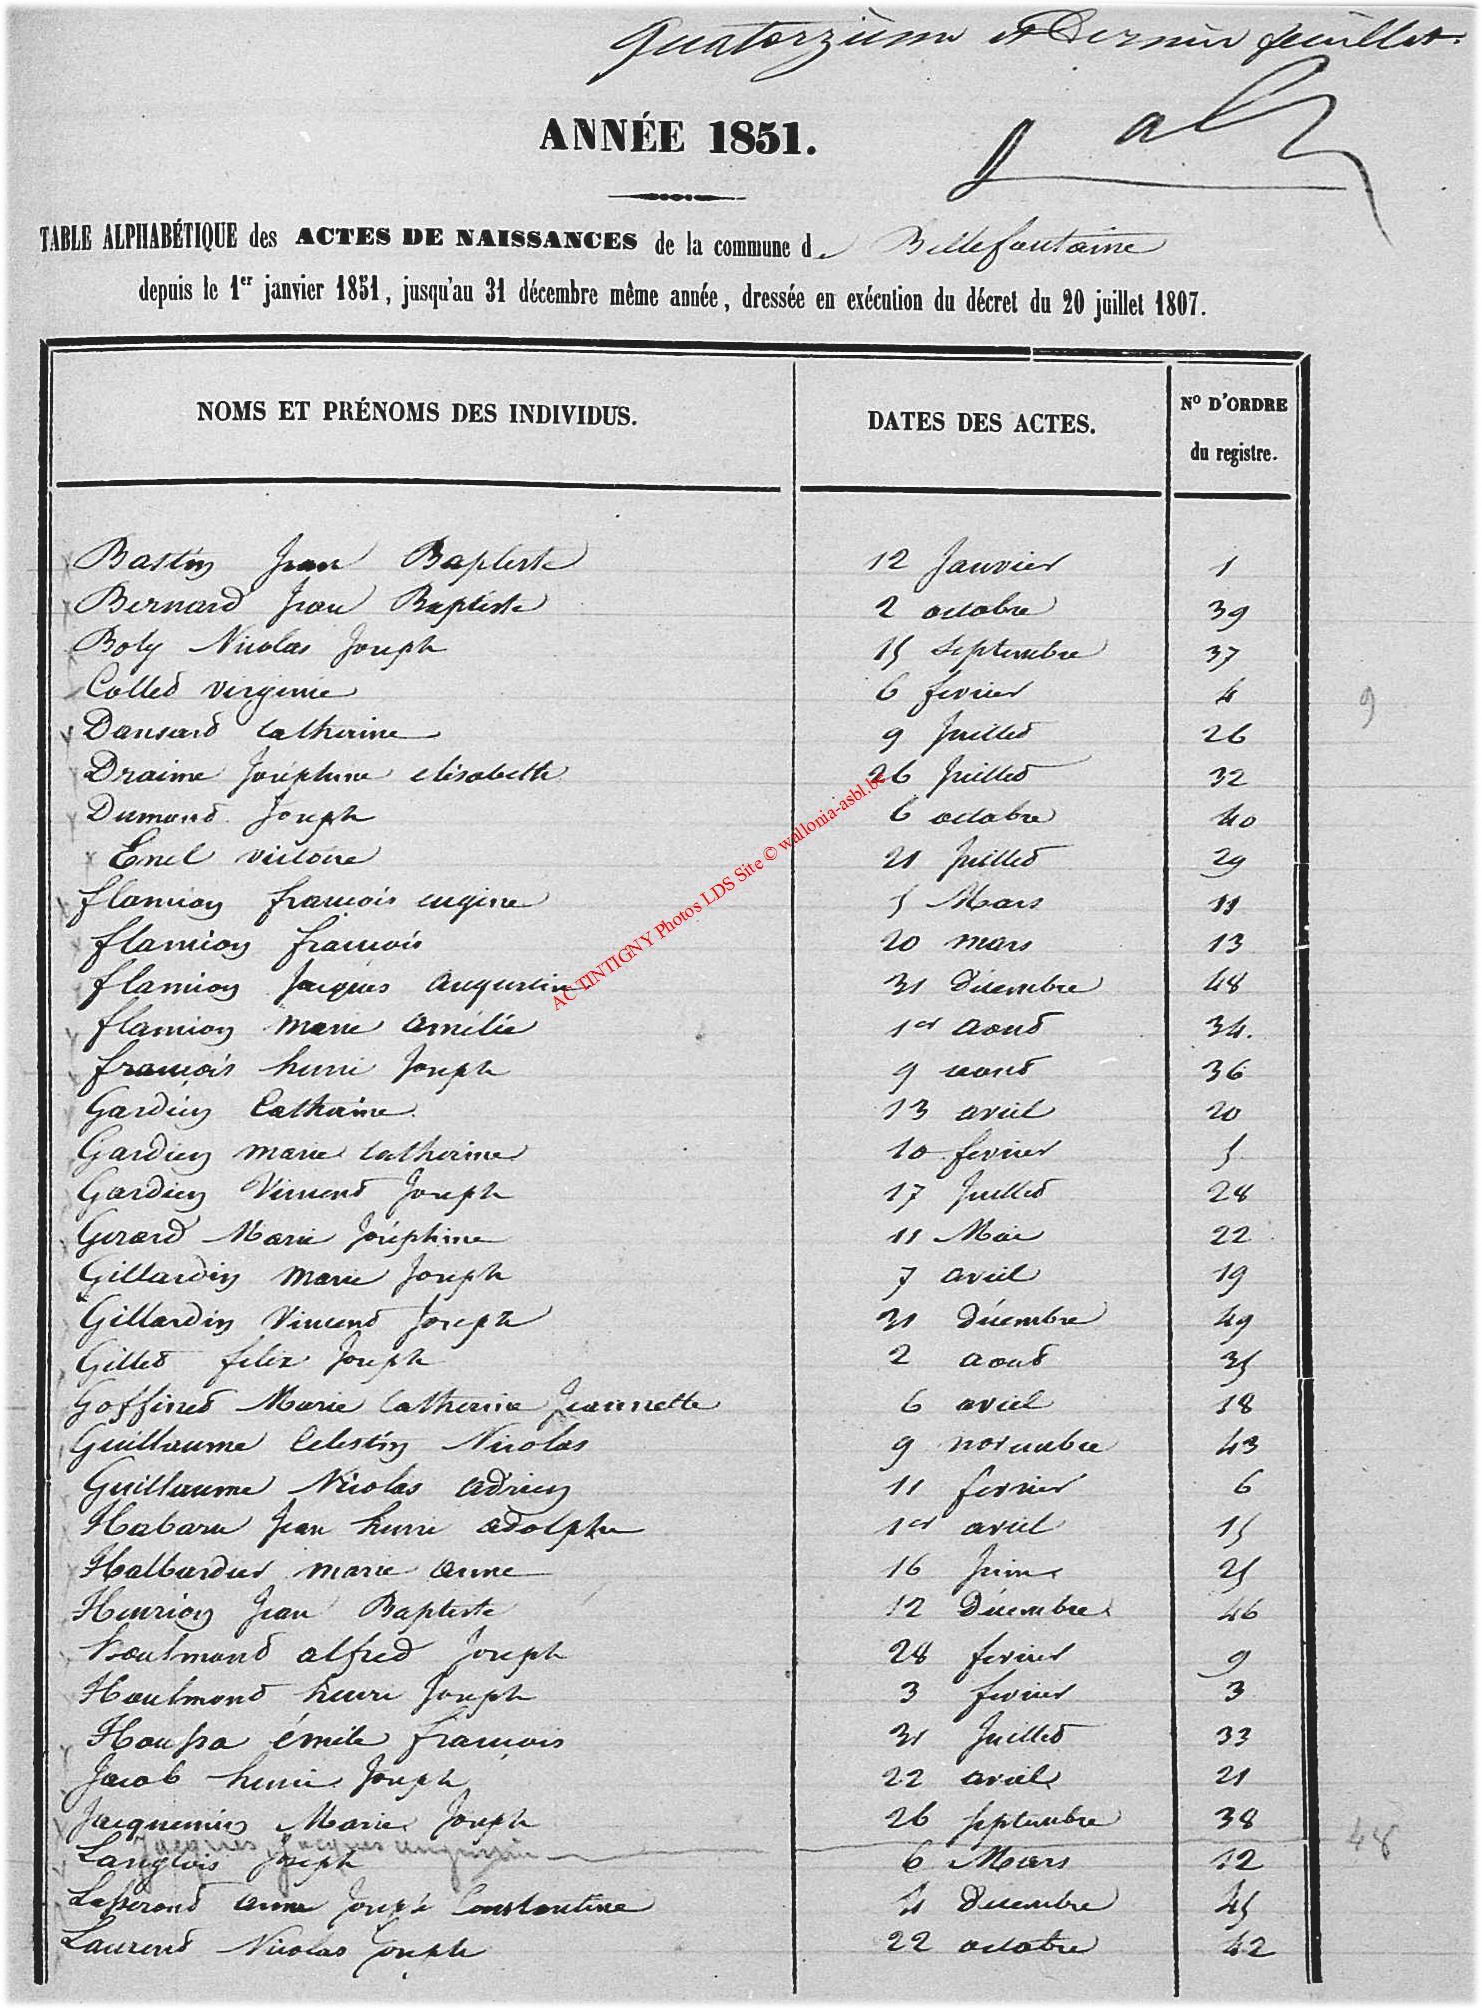 Quatorzième et Dernier feuillet.
ANNÉE 1851.
TABLE ALPHABÉTIQUE des ACTES DE NAISSANCES de la commune de Bellefontaine
depuis le 1er janvier 1851, jusqu'au 31 décembre même année, dressée en exécution du décret du 20 juillet 1807.
NOMS ET PRÉNOMS DES INDIVIDUS. DATES DES ACTES. No D'ORDRE
du registre.
Bastin Jean Baptiste 12 Janvier 1
Bernard Jean Baptiste 2 octobre 39
Boly Nicolas Joseph 15 septembre 37
Collet virginie 6 fevrier 4 9
Dansard Catherine 9 Juillet 26
Draime Joséphine elisabeth 26 Juillet 32
Dumont Joseph 6 octobre 40
Enel victoire 21 Juillet 29
flamion francois eugene 5 Mars 11
flamion francois 20 mars 13
flamion Jacques Augustin 31 Décembre 48
flamion marie amélie 1er Aout 34.
francois henri Joseph 9 aout 36
Gardien Catherine 13 avril 20
Gardien marie Catherine 10 fevrier 5
Gardien Vincent Joseph 17 Juillet 28
Gerard Marie Joséphine 11 Mai 22
Gillardin Marie Joseph 7 avril 19
Gillardin Vincent Joseph 31 Décembre 49
Gillet felix Joseph 2 Aout 35
Goffinet Marie Catherine Jeannette 6 avril 18
Guillaume Celestin Nicolas 9 novembre 43
Guillaume Nicolas Adrien 11 fevrier 6
Habaru Jean henri adolphe 1er avril 15
Halbardier marie anne 16 Juin 25
Henrion Jean Baptiste 12 Décembre 46
Houlmont alfred Joseph 28 fevrier 9
Houlmont henri Joseph 3 fevrier 3
Houssa émile francois 31 Juillet 33
Jacob henri Joseph 22 avril 21
Jacquemin Marie Joseph 26 septembre 38
Jacques Jacques augustin 48
Langlois Joseph 6 Mars 12
Lasserond anne Joseph Constantine 4 Décembre 45
Laurent Nicolas Joseph 22 octobre 42
AC TINTIGNY Photos LDS Site © wallonia-asbl.be